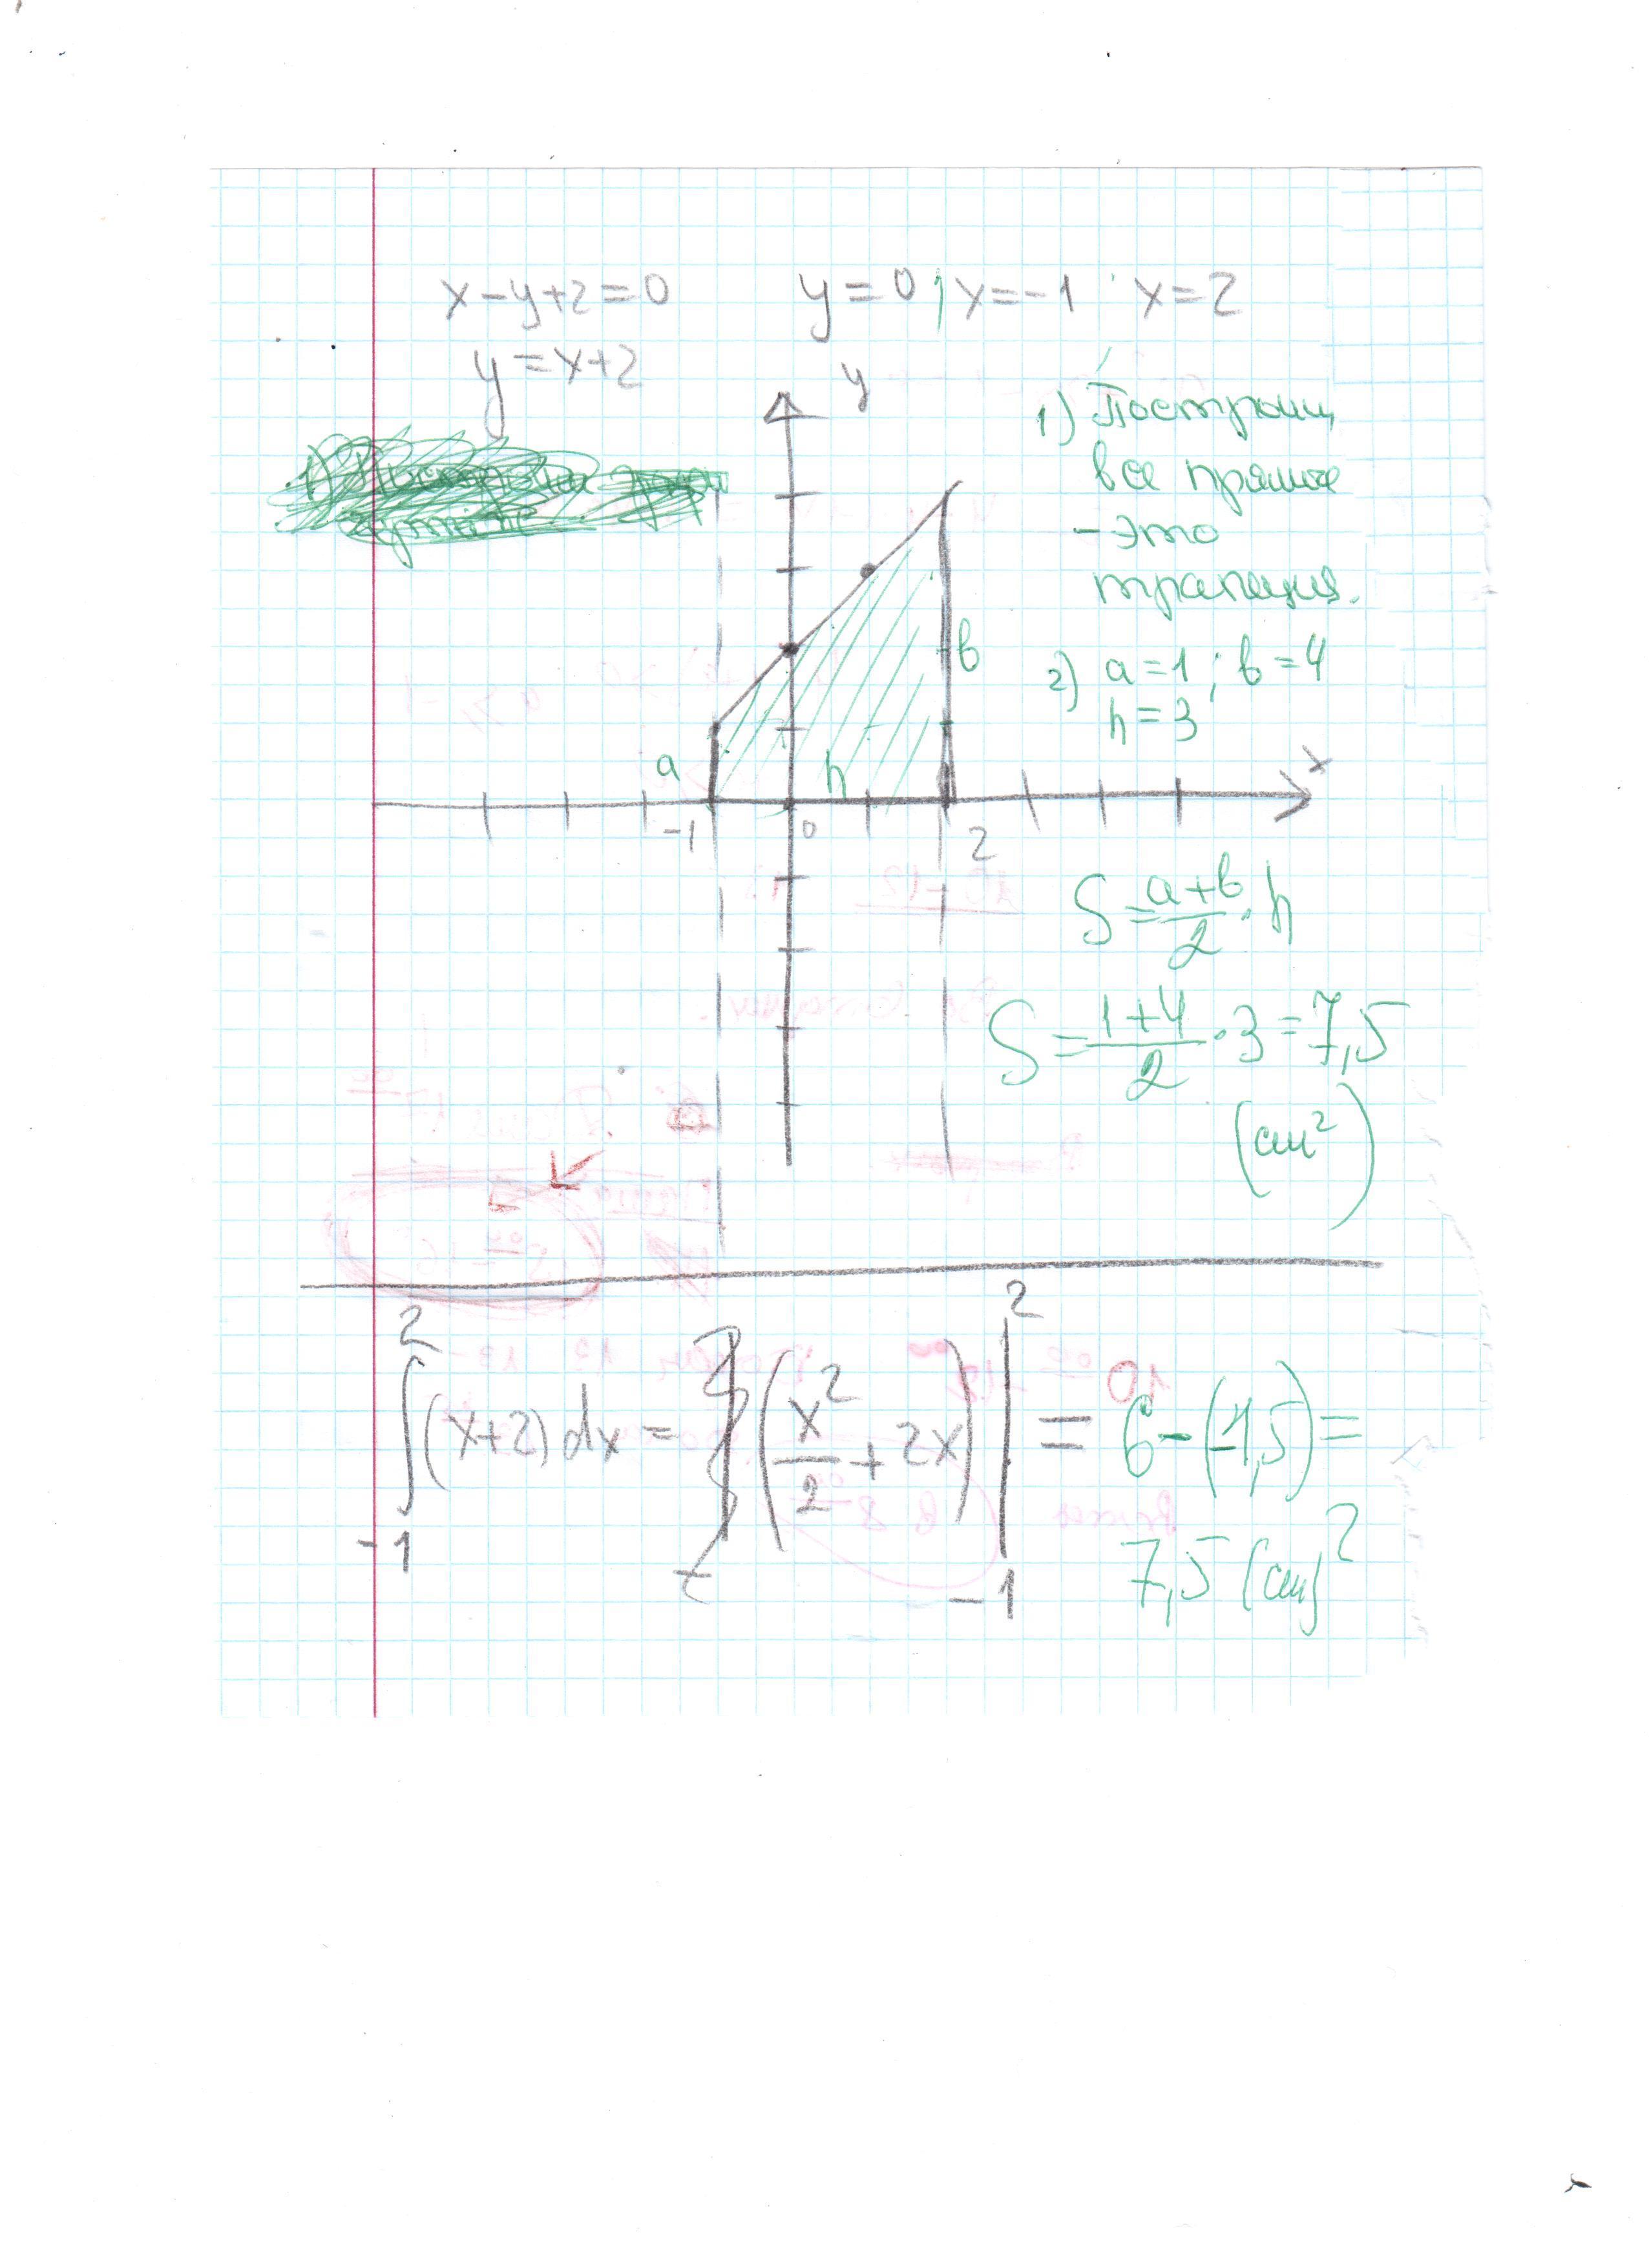 x-y+2=0 y=0; x=-1 x=2
y=x+2
y
1) Построим
все прямые
-это
трапеция.
2) a=1; b=4
h=3
a
h
b
x
-1 0 2
S=a+b/2·h
S=1+4/2·3=7,5
(см²)
∫₋₁²(x+2)dx=(x²/2+2x)|₋₁²=6-(-1,5)=
7,5 (см)²